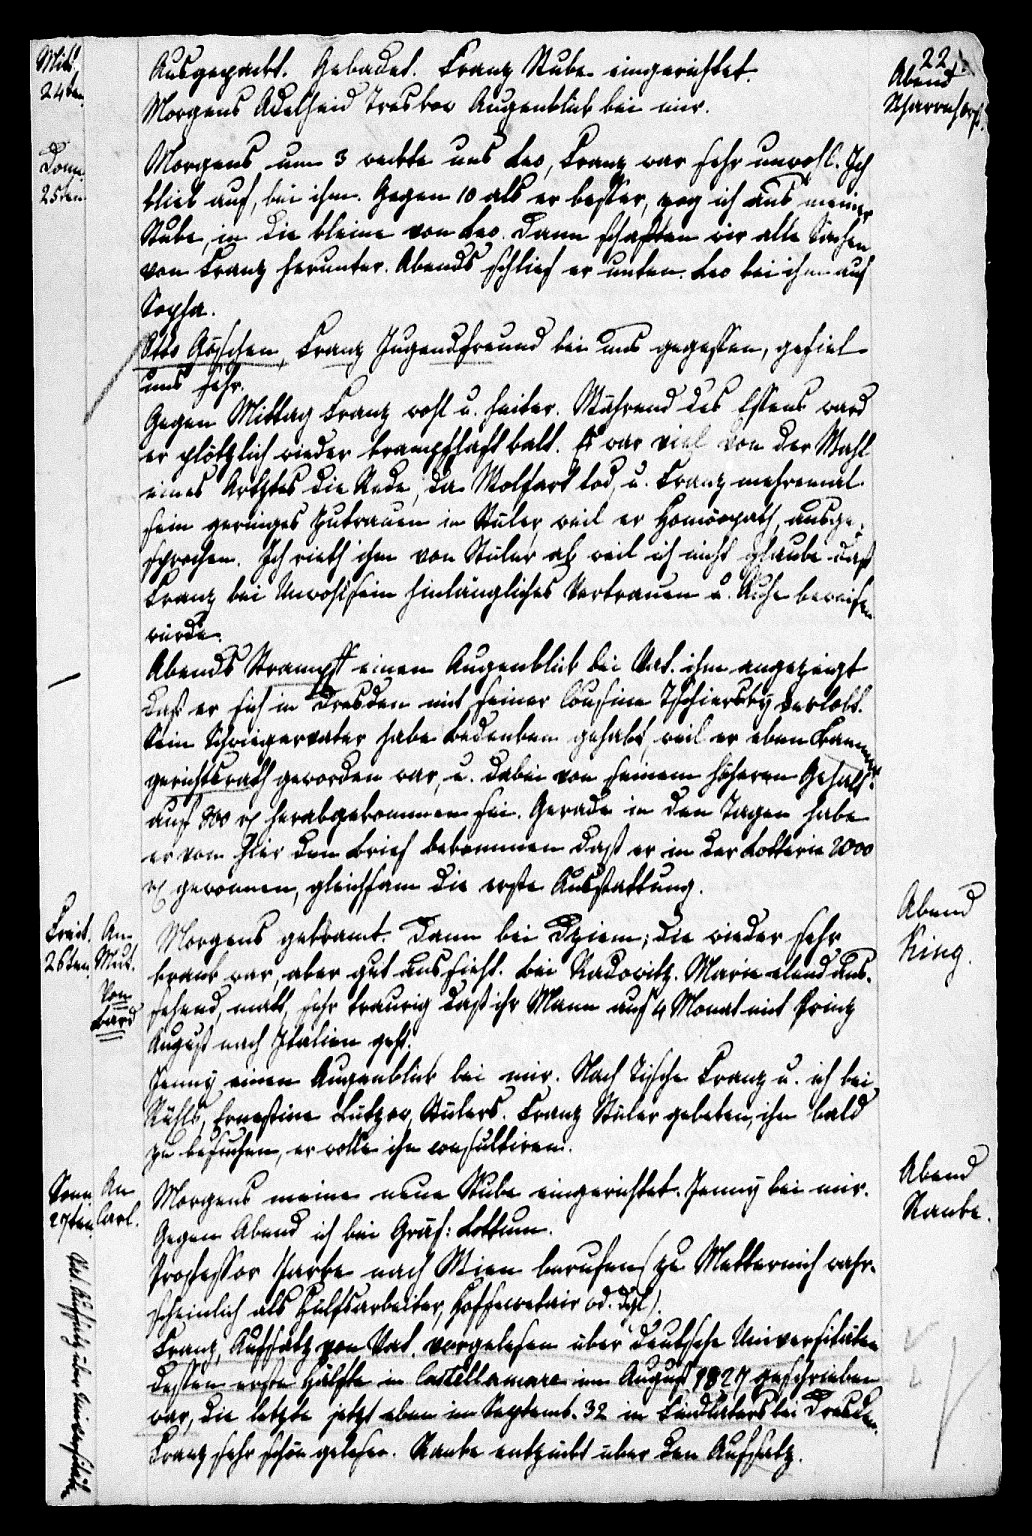 22.
Mitt. 24ten
Ausgepackt. Gebadet. Franz Stube eingerichtet.
Morgens Adelheid Treskow Augenblick bei mir.
Abend
Scharnhorst.
Donn. 25ten.
Morgens um 3 weckte uns Leo, Franz war sehr unwohl. Ich
blieb auf, bei ihm. Gegen 10 als er besser, zog ich aus meiner
Stube, in die kleine von Leo. Dann schafften wir alle Sachen
von Franz herunter. Abends schlief er unten. Leo bei ihm auf
Sopha.
Otto Göschen, Franz Jugendfreund bei uns gegessen, gefiel
uns sehr.
Gegen Mittag Franz wohl u. heiter. Während des Essens ward
er plötzlich wieder krampfhaft kalt. Es war viel von der Wahl
eines Arztes die Rede, da Wolfart tod, u. Franz mehremal
sein geringes Zutrauen in Stüler, weil er Homöopath, ausge-
sprochen. Ich rieth ihm von Stüler ab weil ich nicht glaube daß
Franz bei Unwohlsein hinlängliches Vertrauen u. Ruhe beweisen
würde.
Abends Strampff einen Augenblick bei Vat. ihm angezeigt
daß er sich in Dresden mit seiner Cousine Tschiersky verlobt.
Sein Schwiegervater habe Bedenken gehabt, weil er eben Kammer-
gerichtsrath geworden war, u. dabei von seinem höheren Gehalt
auf 800 rh herabgekommen sei. Gerade in den Tagen habe
er von hier den Brief bekommen daß er in der Lotterie 2000
rh gewonnen, gleichsam die erste Ausstattung.
Freit. 26ten.
An Mut.
Von
Morgens gekramt. Dann bei Dziem; die wieder sehr
krank war, aber gut aussieht. Bei Radowitz. Marie elend aus-
sehend, matt, sehr traurig daß ihr Mann auf 4 Monat mit Prinz
August nach Italien geht.
Jenny einen Augenblick bei mir. Nach Tische Franz u. ich bei
Rühls, Ernestine Lützow, Stülers. Franz Stüler gebeten, ihn bald
zu besuchen, er wolle ihn consultiren.
Abend
Ring.
Sonn. 27ten.
An Carl.
Morgens meine neue Stube eingerichtet. Jenny bei mir.
Gegen Abend ich bei Gräf: Lottum.
Professor Jarke nach Wien berufen (zu Metternich wahr-
scheinlich als Hülfsarbeiter, Hofsecretair od. dgl).
Franz, Aufsatz von Vat. vorgelesen über deutsche Universitäten
dessen erste Hälfte in Castellamare im August 1827 geschrieben
war, die letzte jetzt eben im Septemb. 32 in Findlaters bei Dresden.
Franz sehr schön gelesen. Ranke entzückt über den Aufsatz.
Abend
Ranke.
Vat. Aufsatz über Universitäten